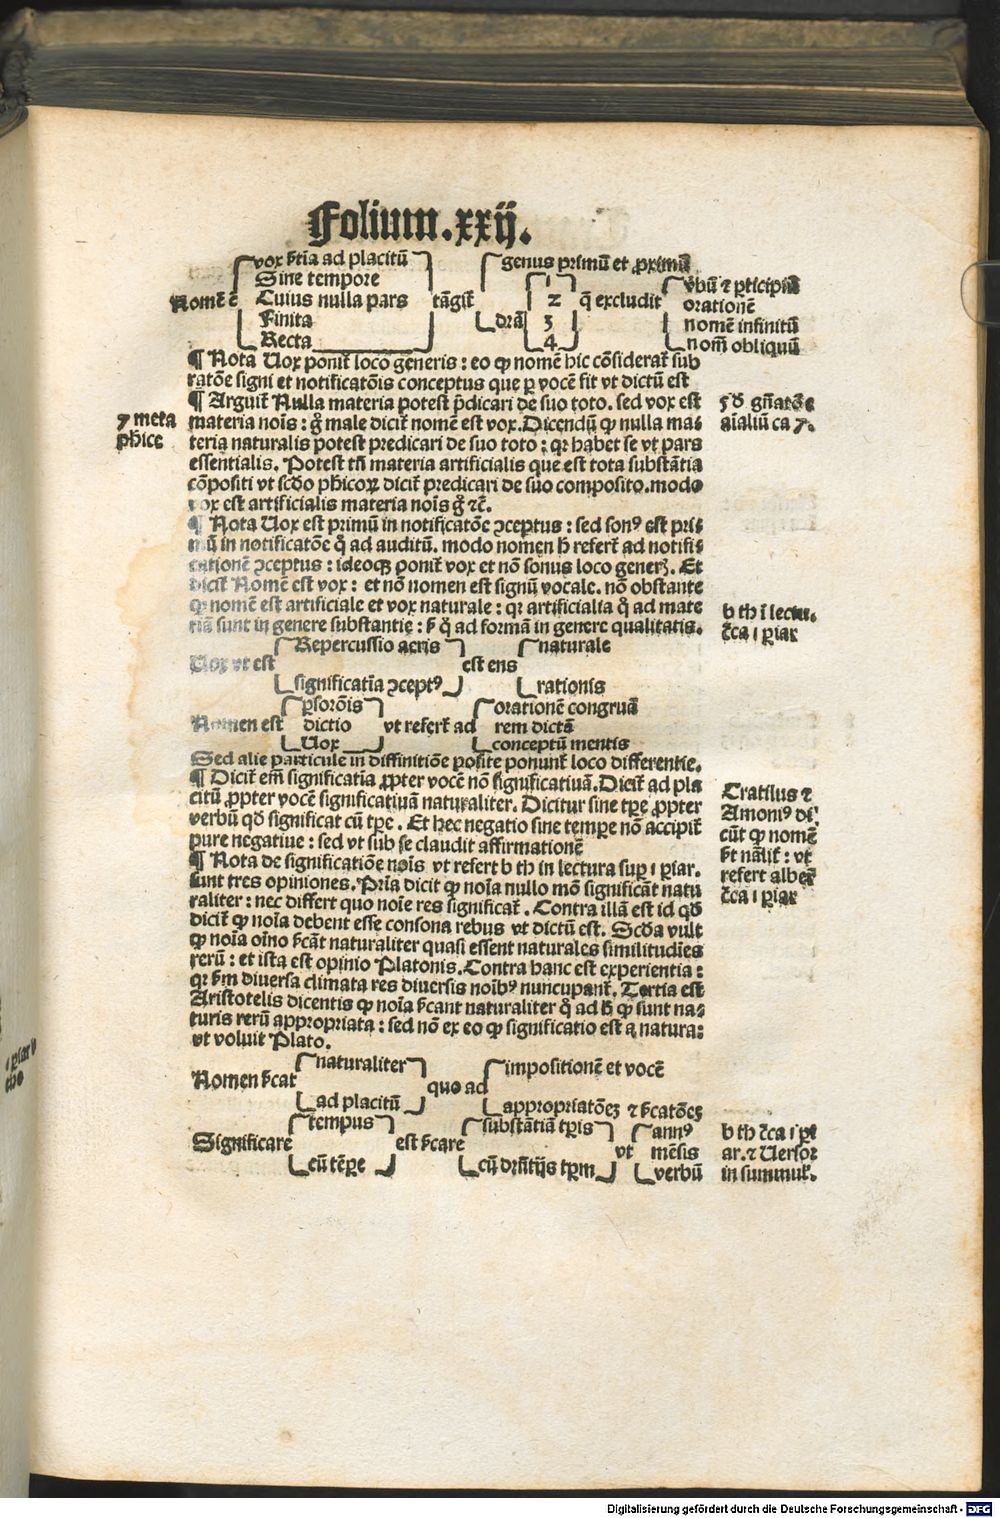 Folium.xxij.
vox ſ̄tia ad placitū genus primū et ꝓximū
Sine tempore 1 v̄bū ⁊ ꝑticipiū
Nomē ē Cuius nulla pars tāgit̄ 2 q̄ excludit orationē
Finita dr̄ā 3 nomē infinitū
Recta 4 nom̄ obliquū
¶ Nota Uox ponit̄ loco generis : eo ꝙ nomē hic cōſiderat̄ ſub
ratōe ſigni et notificatōis conceptus que ꝑ vocē fit vt dictū eſt
¶ Arguit̄ Nulla materia poteſt p̄dicari de ſuo toto. ſed vox eſt
materia nois̄ : gͦ male dicit̄ nomē eſt vox. Dicendū ꝙ nulla ma⸗
teria naturalis poteſt predicari de ſuo toto : qꝛ habet ſe vt pars
eſſentialis. Poteſt tn̄ materia artificialis que eſt tota ſubſtātia
cōpoſiti vt ſcd̄o ph̄icoꝝ dicit̄ predicari de ſuo compoſito. modo
vox eſt artificialis materia nois̄ gͦ ⁊c̄.
7 meta
ph̄ice
aīaliū ca 7.
¶ Nota Uox eſt primū in notificatōe ꝯceptus : ſed ſonꝰ eſt pri⸗
mū in notificatōe qͦ ad auditū. modo nomen h̄ refert̄ ad notifi⸗
cationē ꝯceptus : ideoqꝫ ponit̄ vox et nō ſonus loco generꝭ. Et
dicit̄ Nomē eſt vox : et nō nomen eſt ſignū vocale. nō obſtante
ꝙ nomē eſt artificiale et vox naturale : qꝛ artificialia qͦ ad mate
riā ſunt in genere ſubſtantie : ſ̄ qͦ ad formā in genere qualitatis.
b th ī lectu.
c̄ca i ꝑiar
Repercuſſio aeris naturale
Uox vt eſt eſt ens
ſignificatīa ꝯceptꝰ rationis
ꝑs orōis orationē congruā
Nomen eſt dictio vt refert̄ ad rem dictā
Uox conceptū mentis
Sed alie particule in diffinitiōe poſite ponunt̄ loco differentie.
¶ Dicit̄ em̄ ſignificatīa ꝓpter vocē nō ſignificatiuā. Dicit̄ ad pla
citū ꝓpter vocē ſignificatiuā naturaliter. Dicitur ſine tꝑe ꝓpter
verbū qd̄ ſignificat cū tꝑe. Et hec negatio ſine tempore nō accipit̄
pure negatiue : ſed vt ſub ſe claudit affirmationē
¶ Nota de ſignificatiōe nois̄ vt refert b th in lectura ſuꝑ i ꝑiar.
ſunt tres opiniones. Pria dicit ꝙ noīa nullo mō ſignificāt natu
raliter : nec differt quo noīe res ſignificat̄. Contra illā eſt id qd̄
dicit̄ ꝙ noīa debent eſſe conſona rebus vt dictū eſt. Scd̄a vult
ꝙ noīa oīno ſ̄cāt naturaliter quaſi eſſent naturales ſimilitudīes
rerū : et iſta eſt opinio Platonis. Contra hanc eſt experientia :
qꝛ ſm̄ diuerſa climata res diuerſis noībꝰ nuncupant̄. Tertia eſt
Ariſtotelis dicentis ꝙ noīa ſ̄cant naturaliter qͦ ad h̄ ꝙ ſunt na⸗
turis rerū appropriata : ſed nō ex eo ꝙ ſignificatio eſt a natura :
vt voluit Plato.
Cratilus ⁊
Amoniꝰ di
cūt ꝙ nomē
ſ̄t nālit̄ : vt
refert alber̄
c̄ca i ꝑiar
naturaliter impoſitionē et vocē
Nomen ſ̄cat quo ad
ad placitū appropriatōeꝫ ⁊ ſ̄catōeꝫ
tempus ſubſtantiā tꝑis annꝰ
Significare eſt ſ̄care vt mēſis
cū tēꝑe cū dr̄ntijs tꝑm verbū
b th c̄ca i ꝑi
ar. ⁊ Uerſor
in ſummul̄.
Digitalisierung gefördert durch die Deutsche Forschungsgemeinschaft - DFG